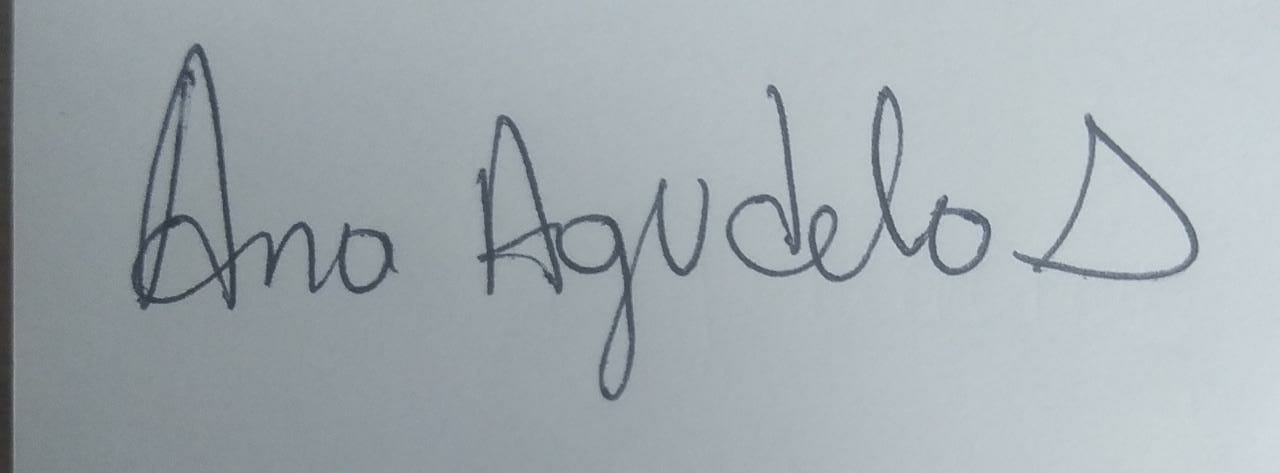 Ana Agudelo S